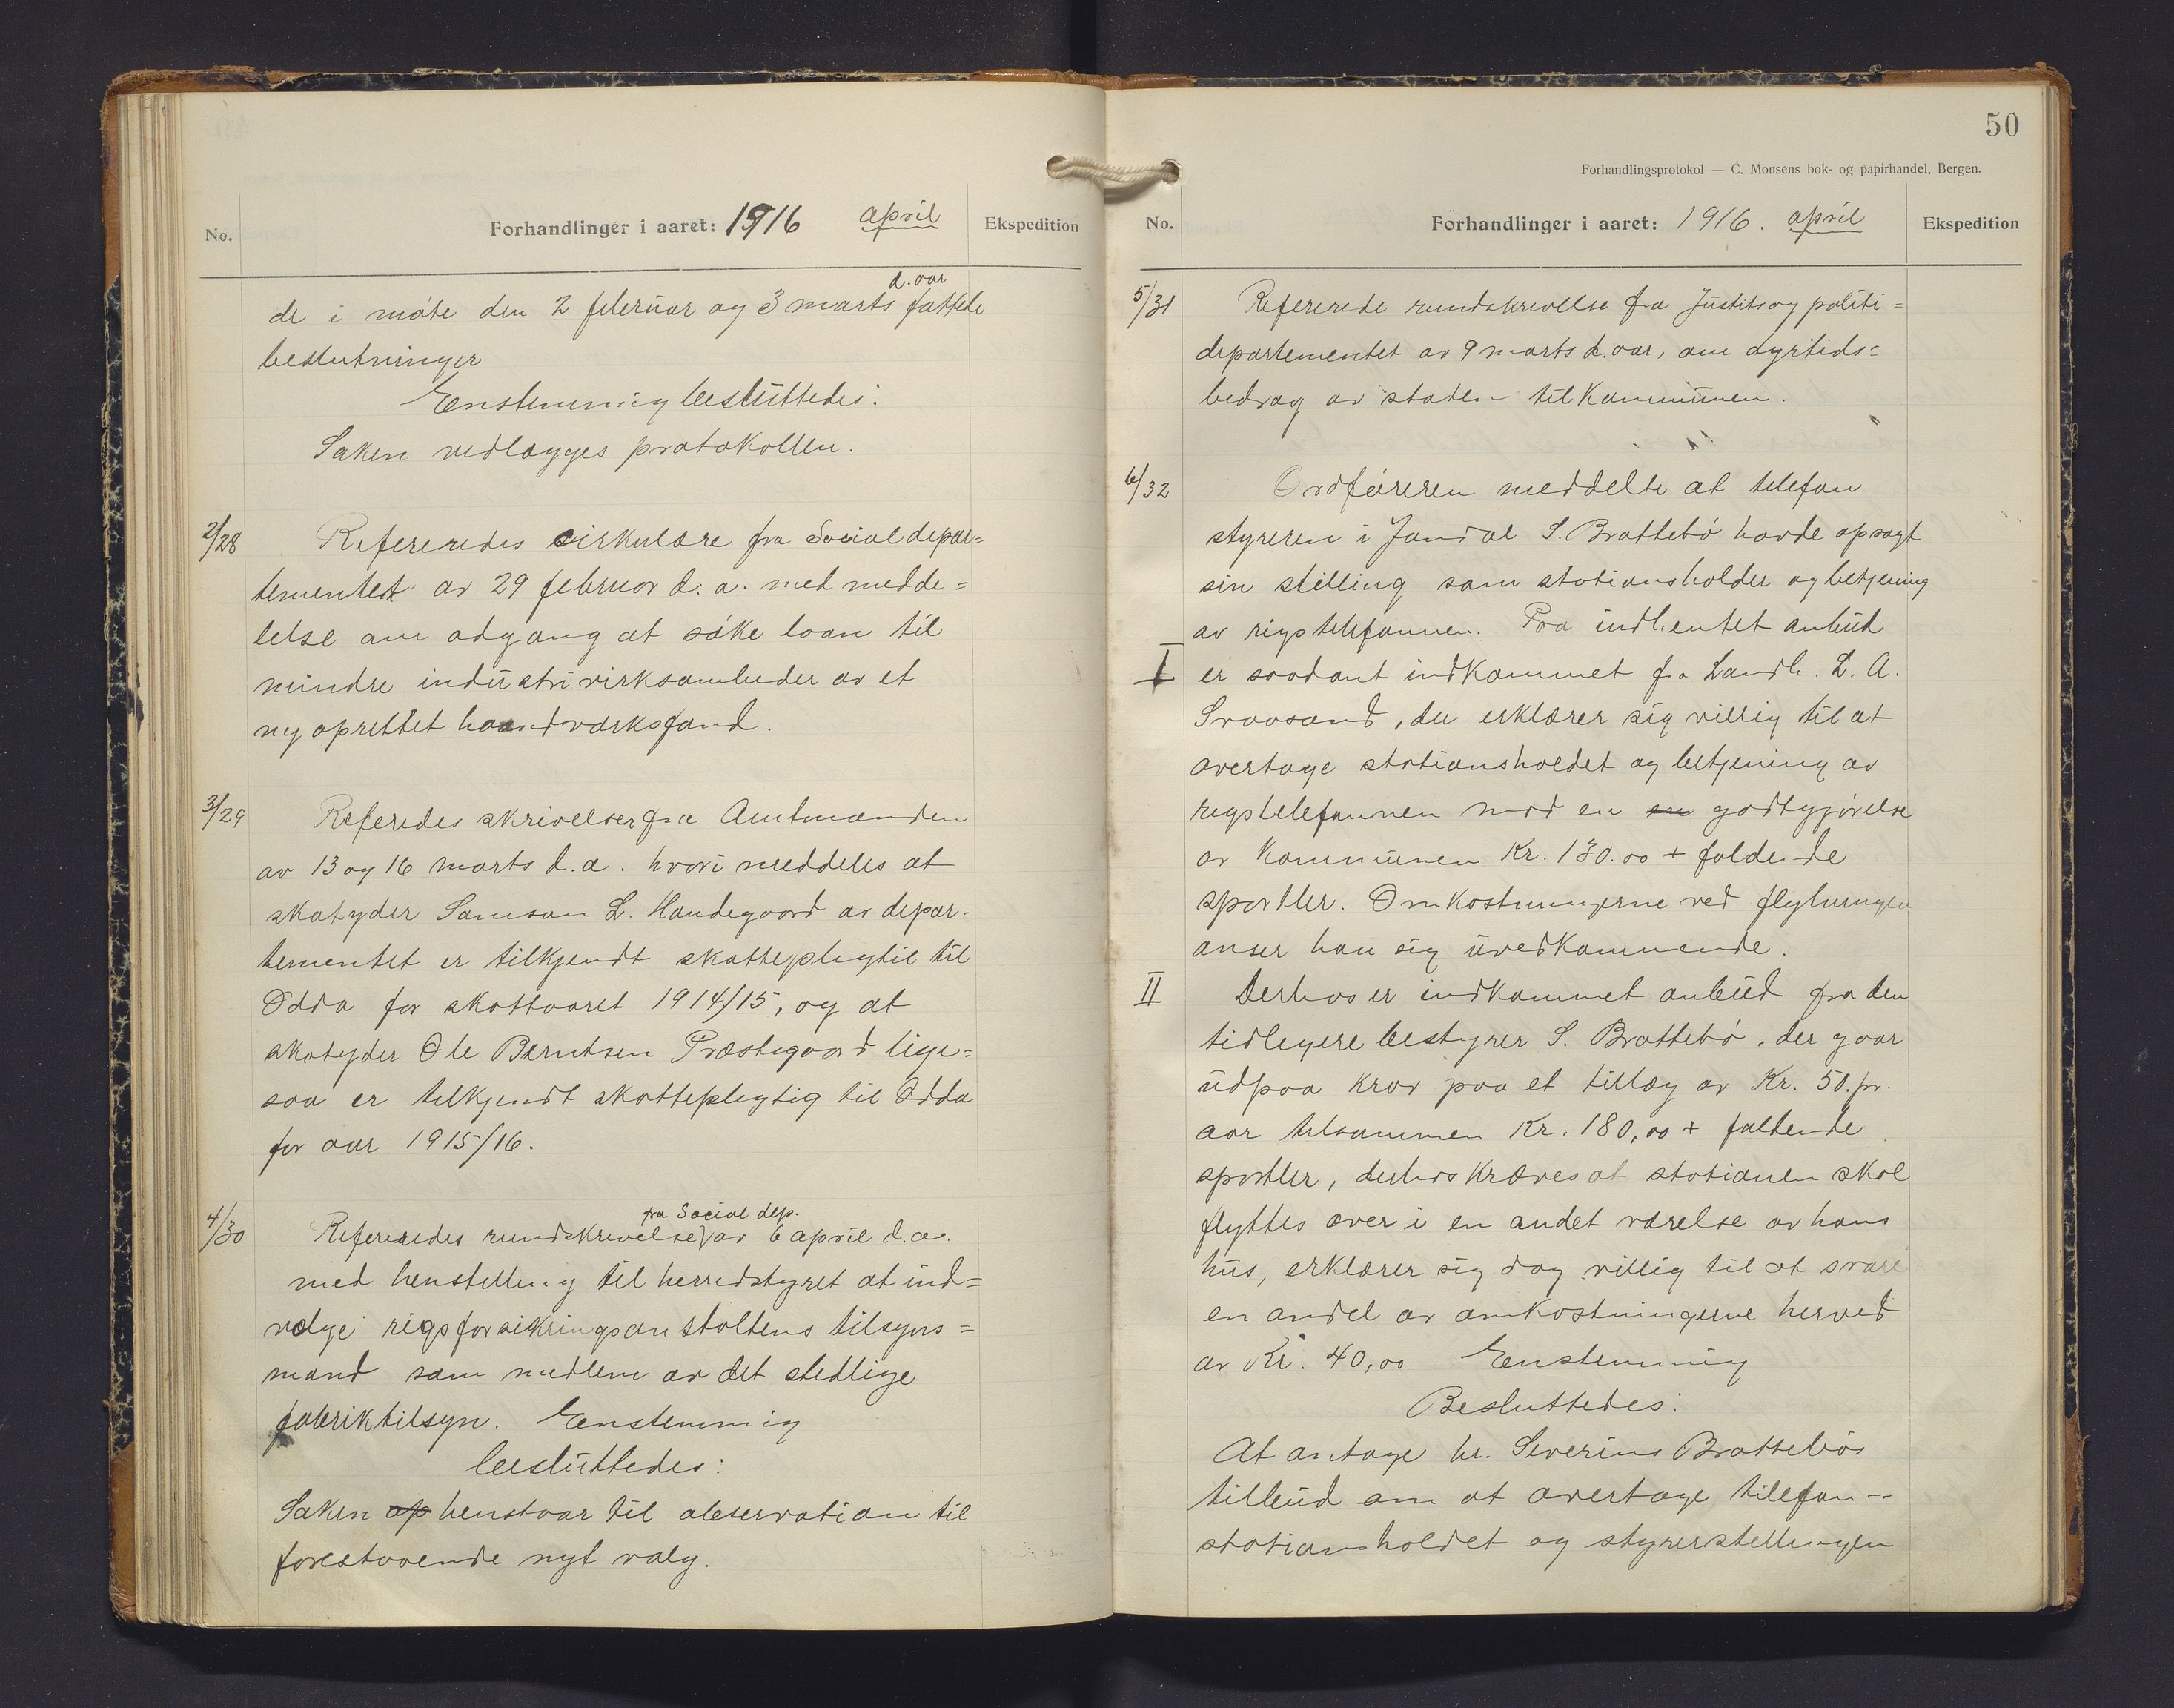 No.
Forhandlinger i aaret: 1916 april
Ekspedition
d. aar
de i møte den 2 februar og 3 marts fattede
beslutninger
Enstemmig besluttedes:
Saken vedlægges protokollen.
2/28
Refereredes sirkulære fra Socialdepar=
tementet av 29 februar d. a. med medde=
lelse om adgang at søke laan til
mindre industrivirksomheder av et
ny oprettet haandværksfond.
3/29
Referedes skrivelser fra Amtmanden
av 13 og 16 marts d. a. hvori meddeles at
skatyder Samson L. Handegaard av depar-
tementet er tilkjendt skattepligtil til
Odda for skattaaret 1914/15, og at
skatyder Ole Berntsen Præstegaard lige=
saa er tilkjendt skattepligtig til Odda
for aar 1915/16.
4/30
fra Social dep.
Refereredes rundskrivelse av 6 april d. a.
med henstilling til herredstyret at ind=
vælge rigsforsikringsanstaltens tilsyns=
mand som medlem av det stedlige
fabriktilsyn. Enstemmig
besluttedes:
Saken op henstaar til observation til
forestaaende nyt valg.
50
Forhandlingsprotokol — C. Monsens bok- og papirhandel, Bergen.
No.
Forhandlinger i aaret: 1916. april
Ekspedition
5/31
Refererede rundskrivelse fra Justits og politi=
departementet av 9 marts d. aar, om dyrtids=
bedrag av staten til kommunen.
6/32
Ordføreren meddelte at telefon
styreren i Jondal S. Brattebø havde opsagt
sin stilling som stationsholder og betjening
av rigstelefonnen. Paa indhentet anbud
I
er saadant indkommet fra Landh. L. A.
Svaasand, der erklærer sig villig til at
overtage stationsholdet og betjening av
regstelefonnen mod en en godtgjørelse
av kommunen Kr. 130.00 + faldende
sportler. Omkostningerne ved flytningen
anser han sig uvedkommende.
II
Derhos er indkommet anbud fra den
tidligere bestyrer S. Brattebø, der gaar
udpaa krav paa et tillæg av Kr. 50. pr.
aar tilsammen Kr. 180,00 + faldende
sportler, derhos kræves at stationen skal
flyttes over i en andet værelse av hans
hus, erklærer sig dog villig til at svare
en andel av omkostningerne herved
av Kr. 40,00 Enstemmig
Besluttedes:
At antage hr. Severins Brattebøs
tilbud om at overtage telefon-
stationsholdet og styrerstillingen